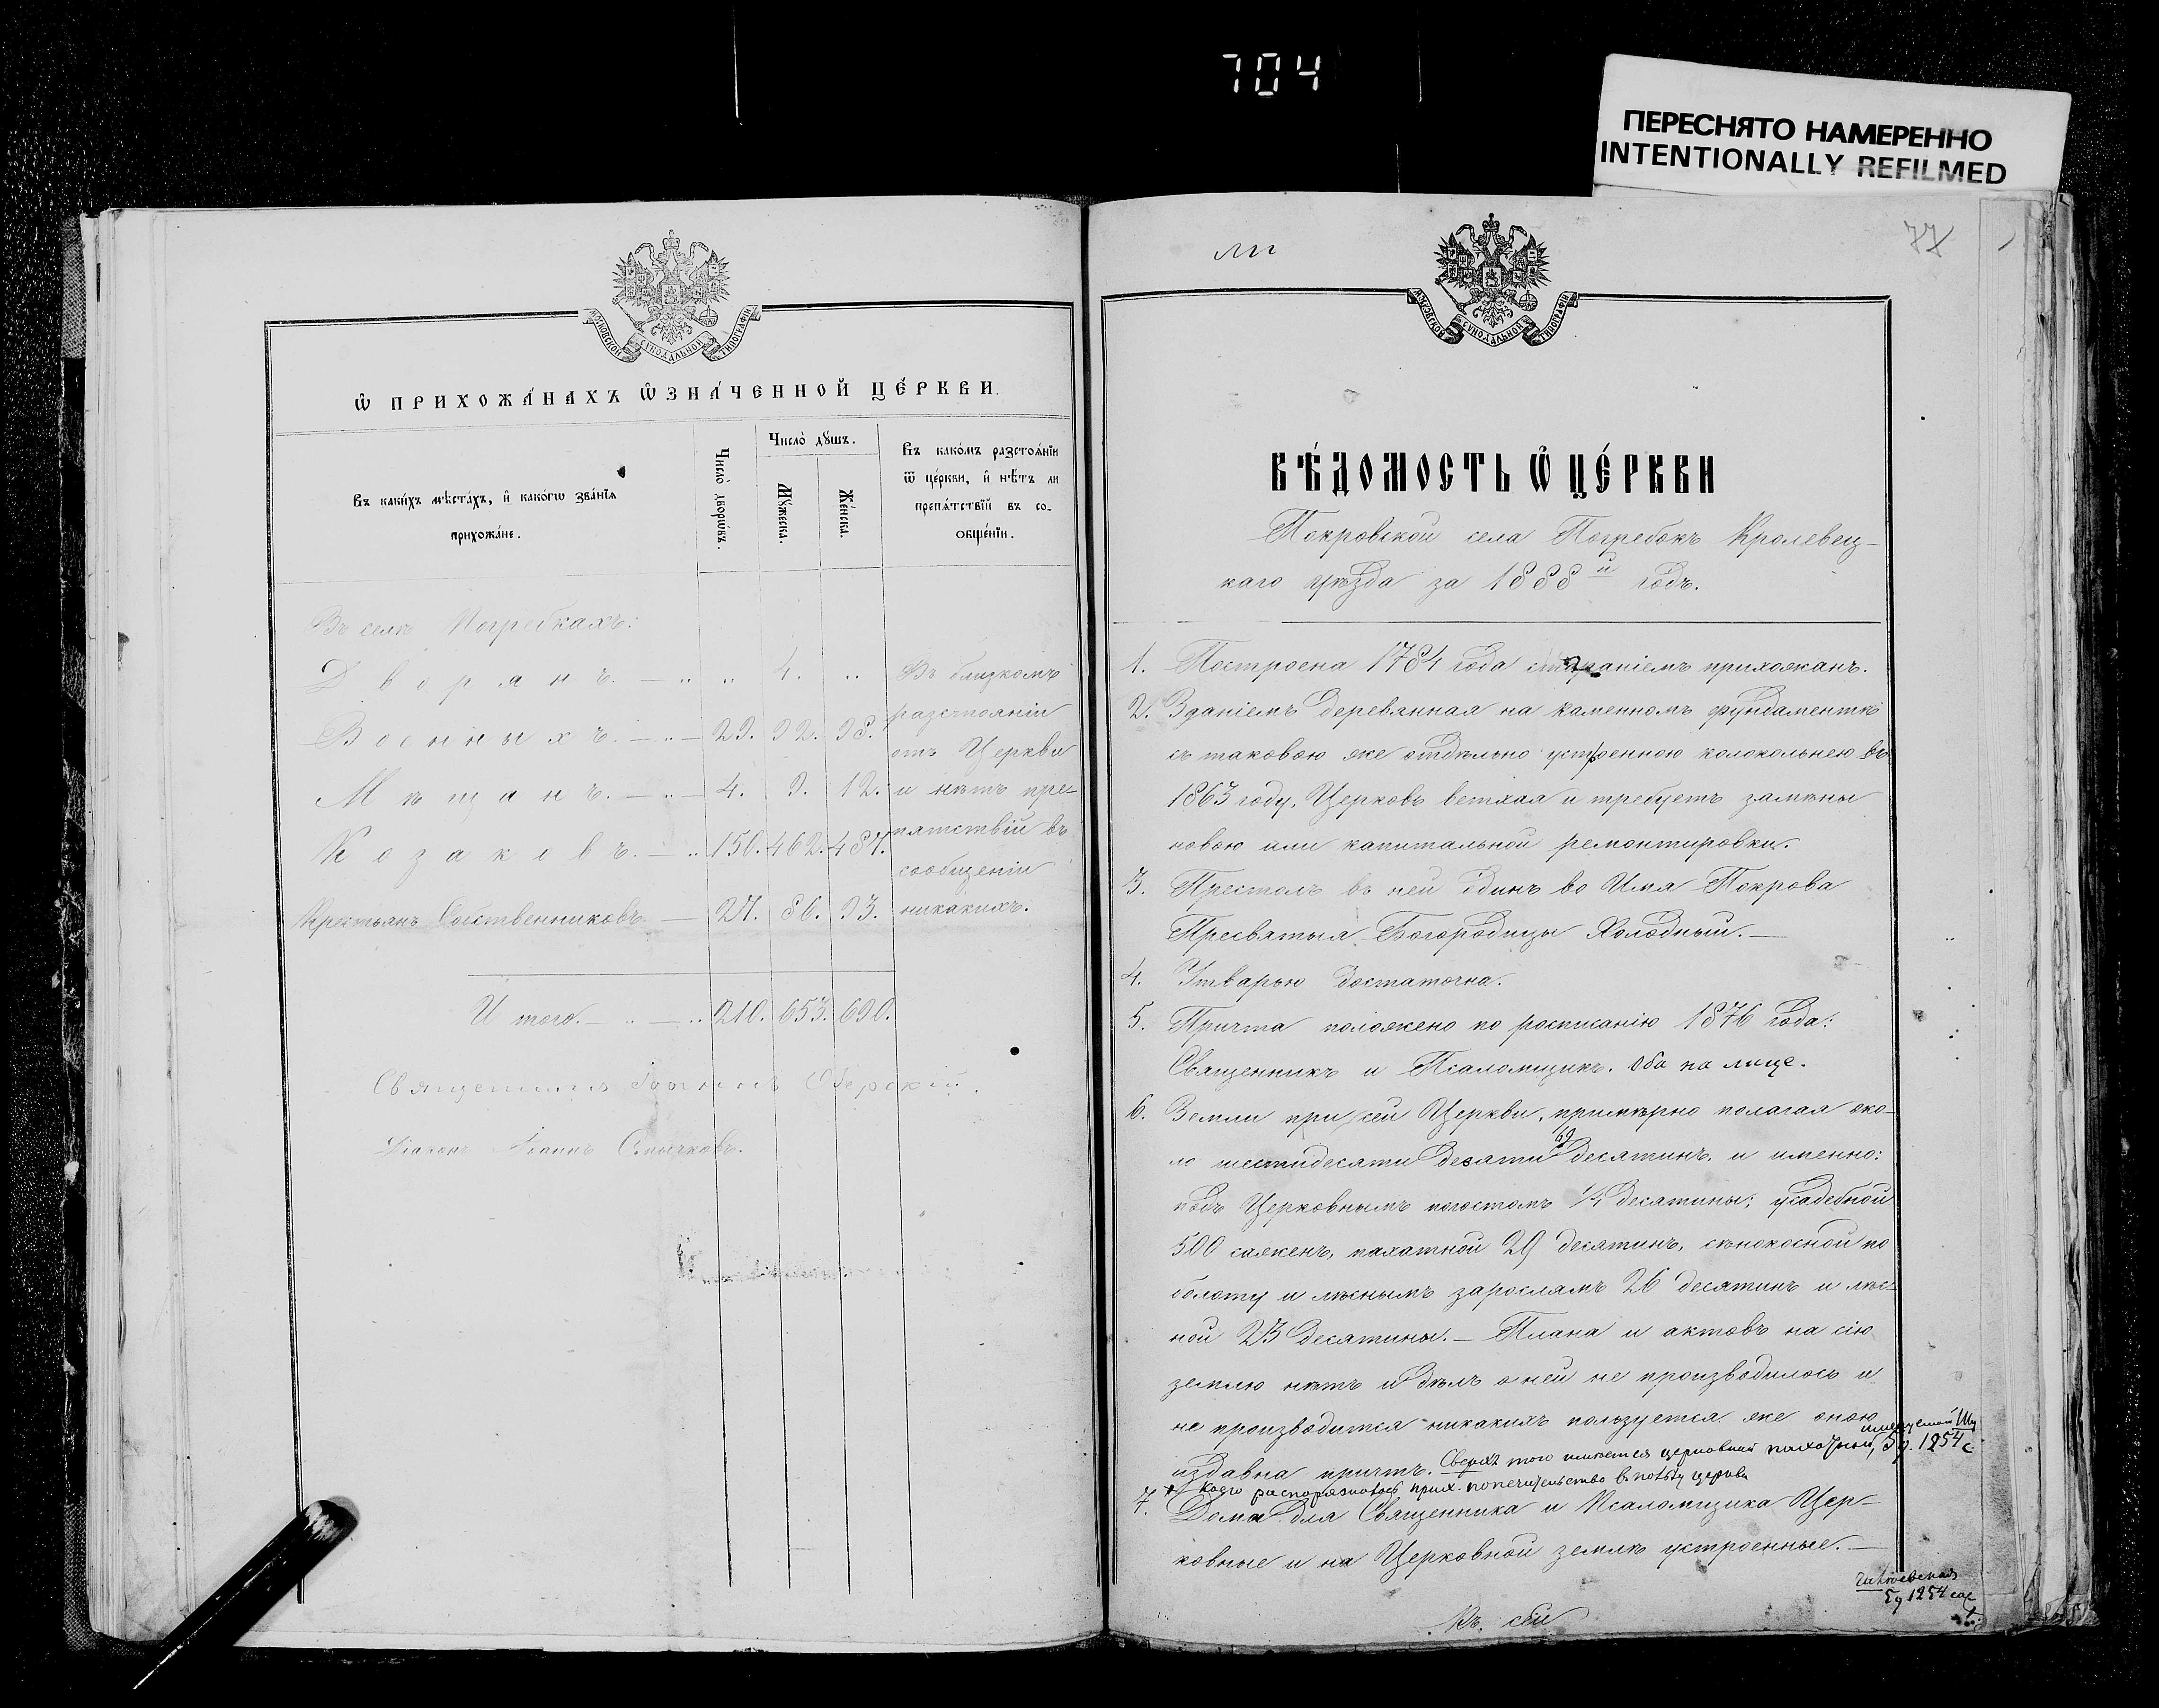 704
ПЕРЕСНЯТО НАМЕРЕННО
INTENTIONALLY REFILMED
МОСКОВСКОЙ СѴНОДАЛЬНОЙ ТИПОГРАФІИ
Ѡ ПРИХОЖА́НАХЪ ѠЗНА́ЧЕННОЙ ЦЕ́РКВИ.
Въ каки́хъ мѣста́хъ, и҆ како́гѡ зва́нїѧ
прихожа́не.
Число̀ дворѡ́въ.
Число̀ дꙋ́шъ.
Мꙋ́жеска.
Же́нска.
Въ како́мъ разстоѧ́нїи
ѿ це́ркви, и҆ нѣ́тъ ли
препѧ́тствїй въ со-
ѻбще́нїи.
Въ селѣ Погребкахъ:
Дворянъ. — „ „ 4. „ Въ близкомъ
разстояніи
Военныхъ. — „ — 29. 92. 98.
отъ Церкви
Мѣщанъ. — „ — 4. 9. 12. и нѣтъ пре-
пятствій въ
Козаковъ. — „ 150. 462. 487.
сообщеніи
Крестьянъ Собственниковъ — 27. 86. 93. никакихъ.
Итого. — „ — „ 210. 653. 690.
Священникъ Іоаннъ
Діаконъ Іоаннъ
77
МОСКОВСКОЙ СѴНОДАЛЬНОЙ ТИПОГРАФІИ
ВѢ́ДОМОСТЬ Ѡ҆ ЦЕ́РКВИ
Покровской села Погребокъ Кролевец-
каго уѣзда за 1888й годъ.
1. Построена 1784 года стараніемъ прихожанъ.
2. Зданіемъ деревянная на каменномъ фундаментѣ
съ таковою же отдѣльно устроенною колокольнею въ
1863 году. Церковь ветхая и требуетъ замѣны
новою или капитальной ремонтировки.
3. Престолъ въ ней одинъ во Имя Покрова
Пресвятыя Богородицы Холодный. —
4. Утварью достаточна.
5. Причта положено по росписанію 1876 года:
Священникъ и Псаломщикъ. Оба на лице.
6. Земли при сей Церкви, примѣрно полагая око-
69
ло шестидесяти девяти десятинъ, и именно:
подъ Церковнымъ погостомъ 1/4 десятины; усадебной
500 саженъ, пахатной 29 десятинъ, сѣнокосной по
болоту и лѣснымъ зарослямъ 26 десятинъ и лѣс-
ной 23 десятины. — Плана и актовъ на сію
землю нѣтъ и дѣлъ о ней не производилось и
не производится никакихъ пользуется же оною
издавна причтъ. Сверхъ того имѣется церковной пахотной, 5 д. 1254 с.
прих. попечительство въ пользу церкви
7. Дома для Священника и Псаломщика Цер-
ковные и на Церковной землѣ устроенные. —
5 д 1254 саж
Къ сей